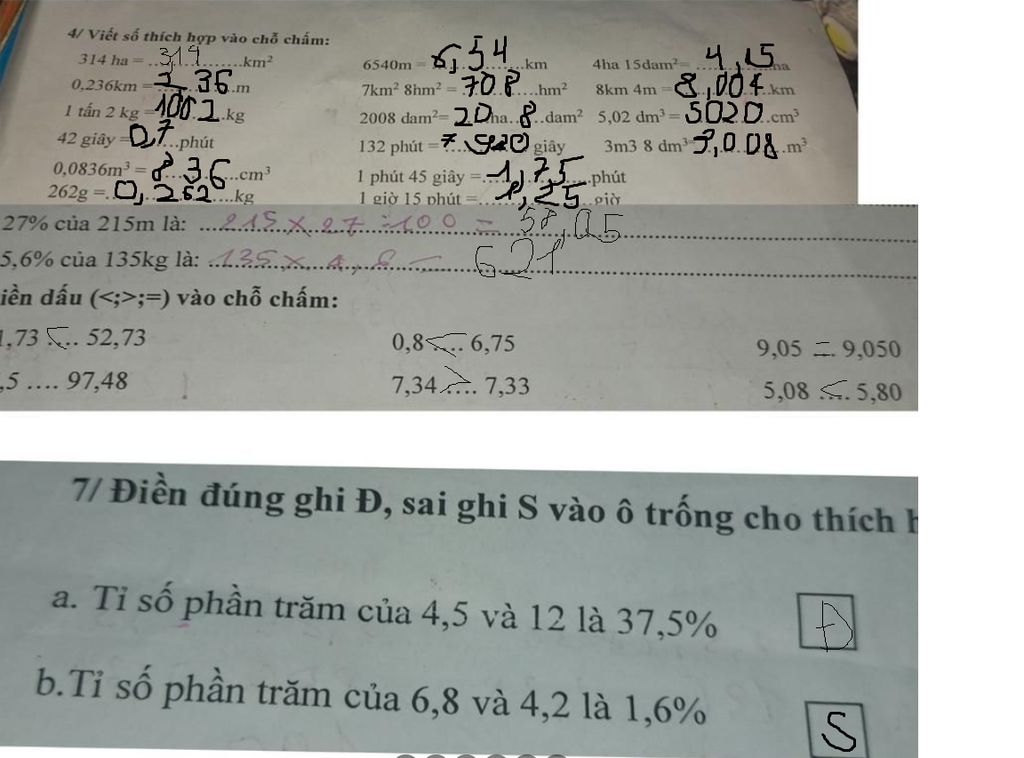 4/ Viết số thích hợp vào chỗ chấm:
314 ha = ..3,14.......km²
6540m = 6,54.......km
4ha 15dam² = ..4,15....ha
0,236km = ..236..m
7km² 8hm² = .708....hm²
8km 4m = 8,004...km
1 tấn 2 kg = 1002..kg
2008 dam² = 20ha..8..dam²
5,02 dm³ = 5020...cm³
42 giây = 0,7....phút
132 phút = 7920 giây
3m3 8 dm³ 3,008..m³
0,0836m³ = 836...cm³
1 phút 45 giây = ..1,75....phút
262g = .0,262....kg
1 giờ 15 phút = ..1,25...giờ
27% của 215m là: ...215 x 27 :100 = 58,05
5,6% của 135kg là: ..135 x 4,6 = 621
iền dấu (<;>;=) vào chỗ chấm:
1,73 <... 52,73
0,8 <.... 6,75
9,05 = 9,050
,5 .... 97,48
7,34 >.... 7,33
5,08 <... 5,80
7/ Điền đúng ghi Đ, sai ghi S vào ô trống cho thích h
a. Tỉ số phần trăm của 4,5 và 12 là 37,5% Đ
b.Tỉ số phần trăm của 6,8 và 4,2 là 1,6% S